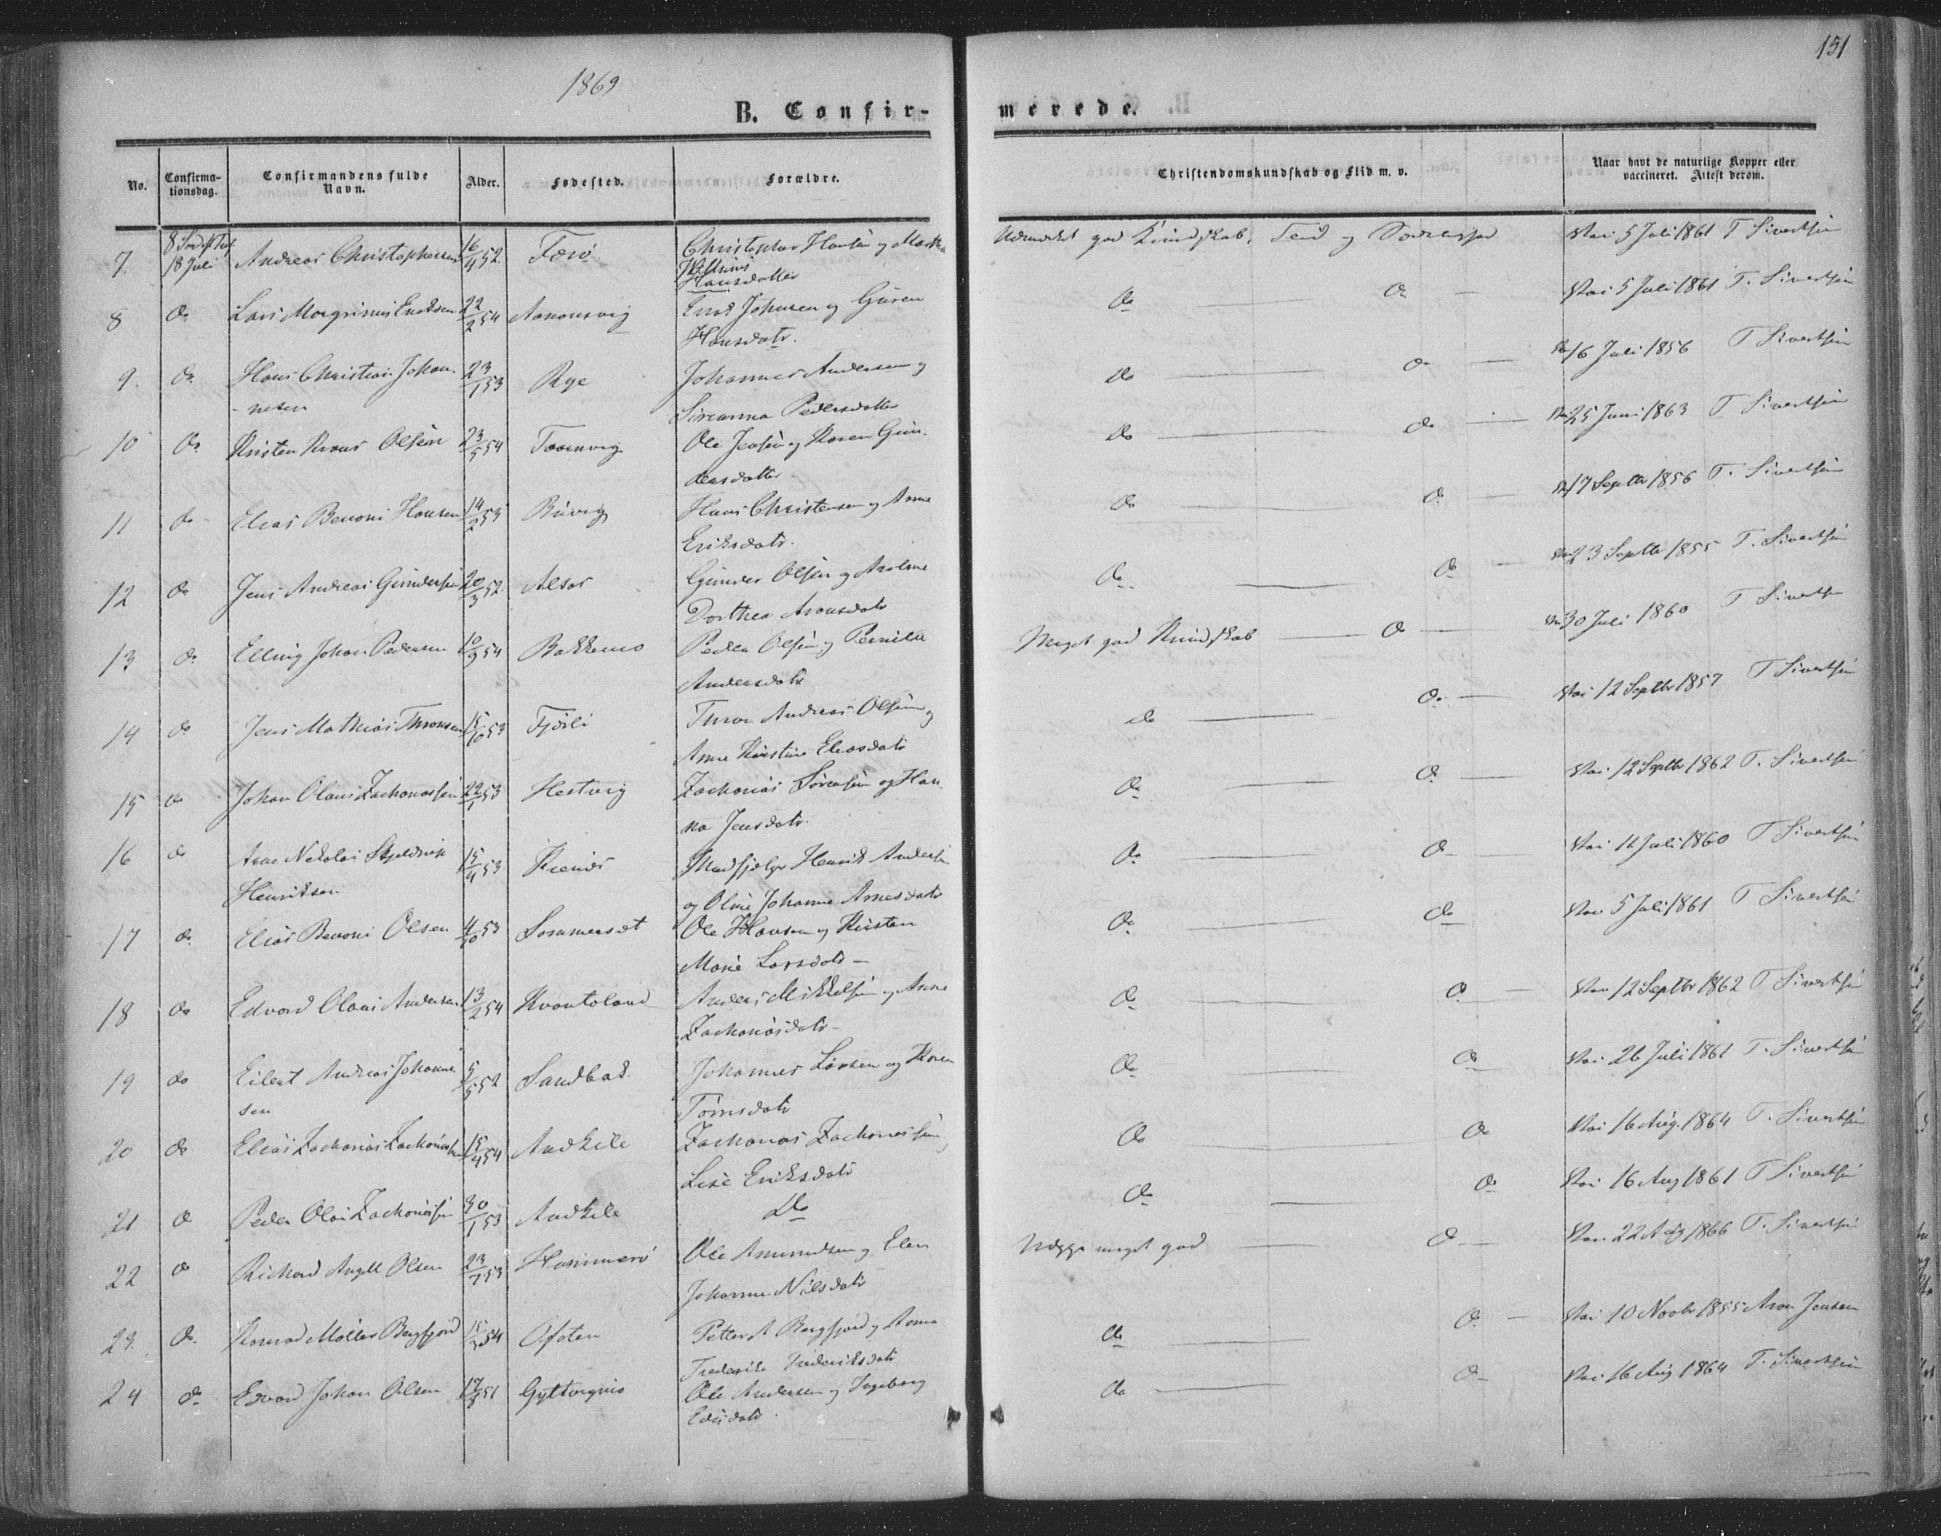 1869
151
B. Confir-
merede.
No.
Confirma-
tionsdag.
Confirmandens fulde
Navn.
Alder.
Fødested.
Forældre.
Christendomskundskab og Flid m. v.
Naar havt de naturlige Kopper eller
vaccineret. Attest derom.
7 18 Juli Andreas Christophersen 16/4 52 Færø Christopher Hansen og
Hansdatter
god Kundskab, Flid og Vac 5 Juli 1861 T Sivertsen
8 do Lars Eriksen 22/2 54 Aanonsvig Erik Johnsen og Guren
Hansdatr.
do do Vac 5 Juli 1861 T. Sivertsen
9 do Hans Christian Johan- 23/1 53 Rye Johannes Andersen og
-nesen Sireanna Pedersdatter
do do 16 Juli 1856 T Sivertsen
10 do Kristen Olsen 23/5 54 Taarnvig Ole Jensen og Karen Gun-
dersdatter
do do 25 Juni 1863 T Sivertsen
11 do Elias Benoni Hansen 14/2 53 Buvig Hans Christensen og Anne
Eriksdatr.
do do 17 Septbr 1856 T. Sivertsen
12 do Jens Andreas Gundersen 20/3 52 Alsos Gunder Olsen og
Dorthea Aronsdatr
do do 23 Septbr 1855 T. Sivertsen
13 do Elling Johan Pedersen 10/9 54 Bakkemo Peder Olsen og Pernille
Andersdatr
Meget god Kundskab do 30 Juli 1860 T Sivertsen
14 do Jens Mathias Thronsen 15/10 53 Fjærli Thron Andreas Olsen og
Anne Kirstine Eliasdatr
do do Vac 12 Septbr 1857 T Sivertsen
15 do Johan Olaus Zachariassen 22/1 53 Hestvig Zacharias Sørensen og Han-
na Jensdatr.
do do Vac 12 Septbr 1862 T. Sivertsen
16 do Arne Nikolai 15/4 53 Henrik Andersen
Henriksen og Oline Johanne Arnesdatr
do do Vac 11 Juli 1860 T Sivertsen
17 do Elias Benoni Olsen 4/10 53 Sommerset Ole Hansen og Kirsten
Marie Larsdatr
do do Vac 5 Juli 1861 T Sivertsen
18 do Edvard Olaus Andersen 13/2 54 Kvantoland Anders Mikkelsen og Anne
Zachariasdatr
do do Vac 12 Septbr 1862 T Sivertsen
19 do Eilert Andreas Johanne- 5/5 52 Sandbak Johannes Larsen og Karen
sen Tomsdatr
do do Vac 26 Juli 1861 T. Sivertsen
20 do Elias Zacharias Zachariassen 15/4 54 Andkile Zacharias Zachariassen
Lise Eriksdatr
do do Vac 16 Aug. 1864 T. Sivertsen
21 do Peder Olai Zachariassen 30/1 53 Andkile Do
do do Vac 16 Aug 1861 T Sivertsen
22 do Richard Angell Olsen 23/7 53 Hammerø Ole Amundsen og Elen
Johanne Nilsdatr
meget god do Vac 22 Aug 1866 T. Sivertsen
23. do Konrad Møller Bergfjord 15/ 54 Ofoten Petter A Bergfjord og Anna
Frederike Frederiksdatr
do do Vac 10 Novbr 1855 Aron Jensen
24 do Edvard Johan Olsen 51 Ole Andersen og Ingeborg
do do Vac 16 Aug 1864 T. Sivertsen